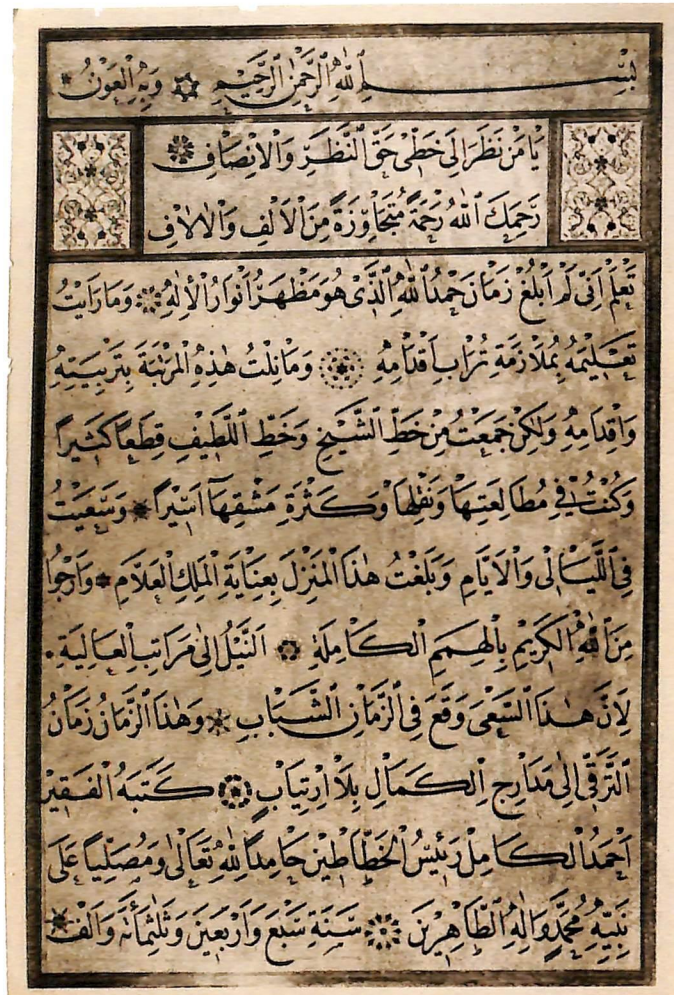 بِسْمِ اللّٰهِ الرَّحْمٰنِ الرَّحِيمِ وَبِهِ الْعَوْنُ
يَا مَنْ نَظَرَ اِلٰى خَطِّى حَقَّ النَّظَرِ وَالْاِنْصَافِ
رَحِمَكَ اللّٰهُ رَحْمَةً مُتَجَاوِزَةً مِنَ الْاَلْفِ وَالْاٰلَافِ
تَعْلَمْ اَنِّى لَمْ اَبْلُغْ زَمَانَ حَمْدُ اللّٰهِ الَّذِى هُوَ مَظْهَرُ اَنْوَارُ الْاِلٰهِ وَمَا رَاَيْتُ
تَعْلِيمَهُ بِمُلَازَمَةِ تُرَابِ اَقْدَامِهِ وَمَا نِلْتُ هٰذِهِ الْمَرْتَبَةَ بِتَرْبِيَتِهِ
وَاِقْدَامِهِ وَلٰكِنْ جَمَعْتُ مِنْ خَطِّ الشَّيْخِ وَخَطِّ اللَّطِيفِ قِطَعًا كَثِيرًا
وَكُنْتُ فِى مُطَالَعَتِهَا وَنَقْلِهَا وَكَثْرَةِ مَشْقِهَا اَسِيرًا وَسَعَيْتُ
فِى اللَّيَالِى وَالْاَيَّامِ وَبَلَغْتُ هٰذَا الْمَنْزِلَ بِعِنَايَةِ الْمَلِكِ الْعَلَّامِ وَارْجُوا
مِنَ اللّٰهِ الْكَرِيمِ بِالْهِمَمِ الْكَامِلَةِ النَّيْلُ اِلٰى مَرَاتِبِ الْعَالِيَةِ
لِاَنَّ هٰذَا السَّعْىَ وَقَعَ فِى الزَّمَانِ الشَّبَابِ وَهٰذَا الزَّمَانُ زَمَانُ
التَّرَقِّى اِلٰى مَدَارِجِ الْكَمَالِ بِلَا ارْتِيَابٍ كَتَبَهُ الْفَقِيرُ
اَحْمَدُ الْكَامِلْ رَئِيسُ الْخَطَّاطِينَ حَامِدًا لِلّٰهِ تَعَالٰى وَمُصَلِّيًا عَلٰى
نَبِيِّهِ مُحَمَّدٍ وَاٰلِهِ الطَّاهِرِينَ سَنَةِ سَبْعٍ وَاَرْبَعِينَ وَثَلٰثِمِائَةٍ وَاَلْفٍ